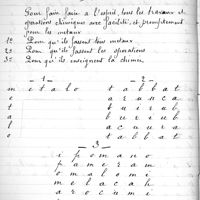 Pour faire faire a l'esprit tous les travaux et
operations chimique avec facilité, et promptement
pour les metaux
1º Pour qu'ils fassent tous metaux
2º Pour qu'ils fassent les operations
3º Pour qu'ils enseignent la chimie
1
2
m e t a l o
t a b b a t
e
a r u u c a
t
b u i r u b
a
b u r i u b
l
a c u u r a
o
t a b b a t
3
i p o m a n o
p a m e r a m
o m a l o m i
m e l a c a h
a r o c u m i